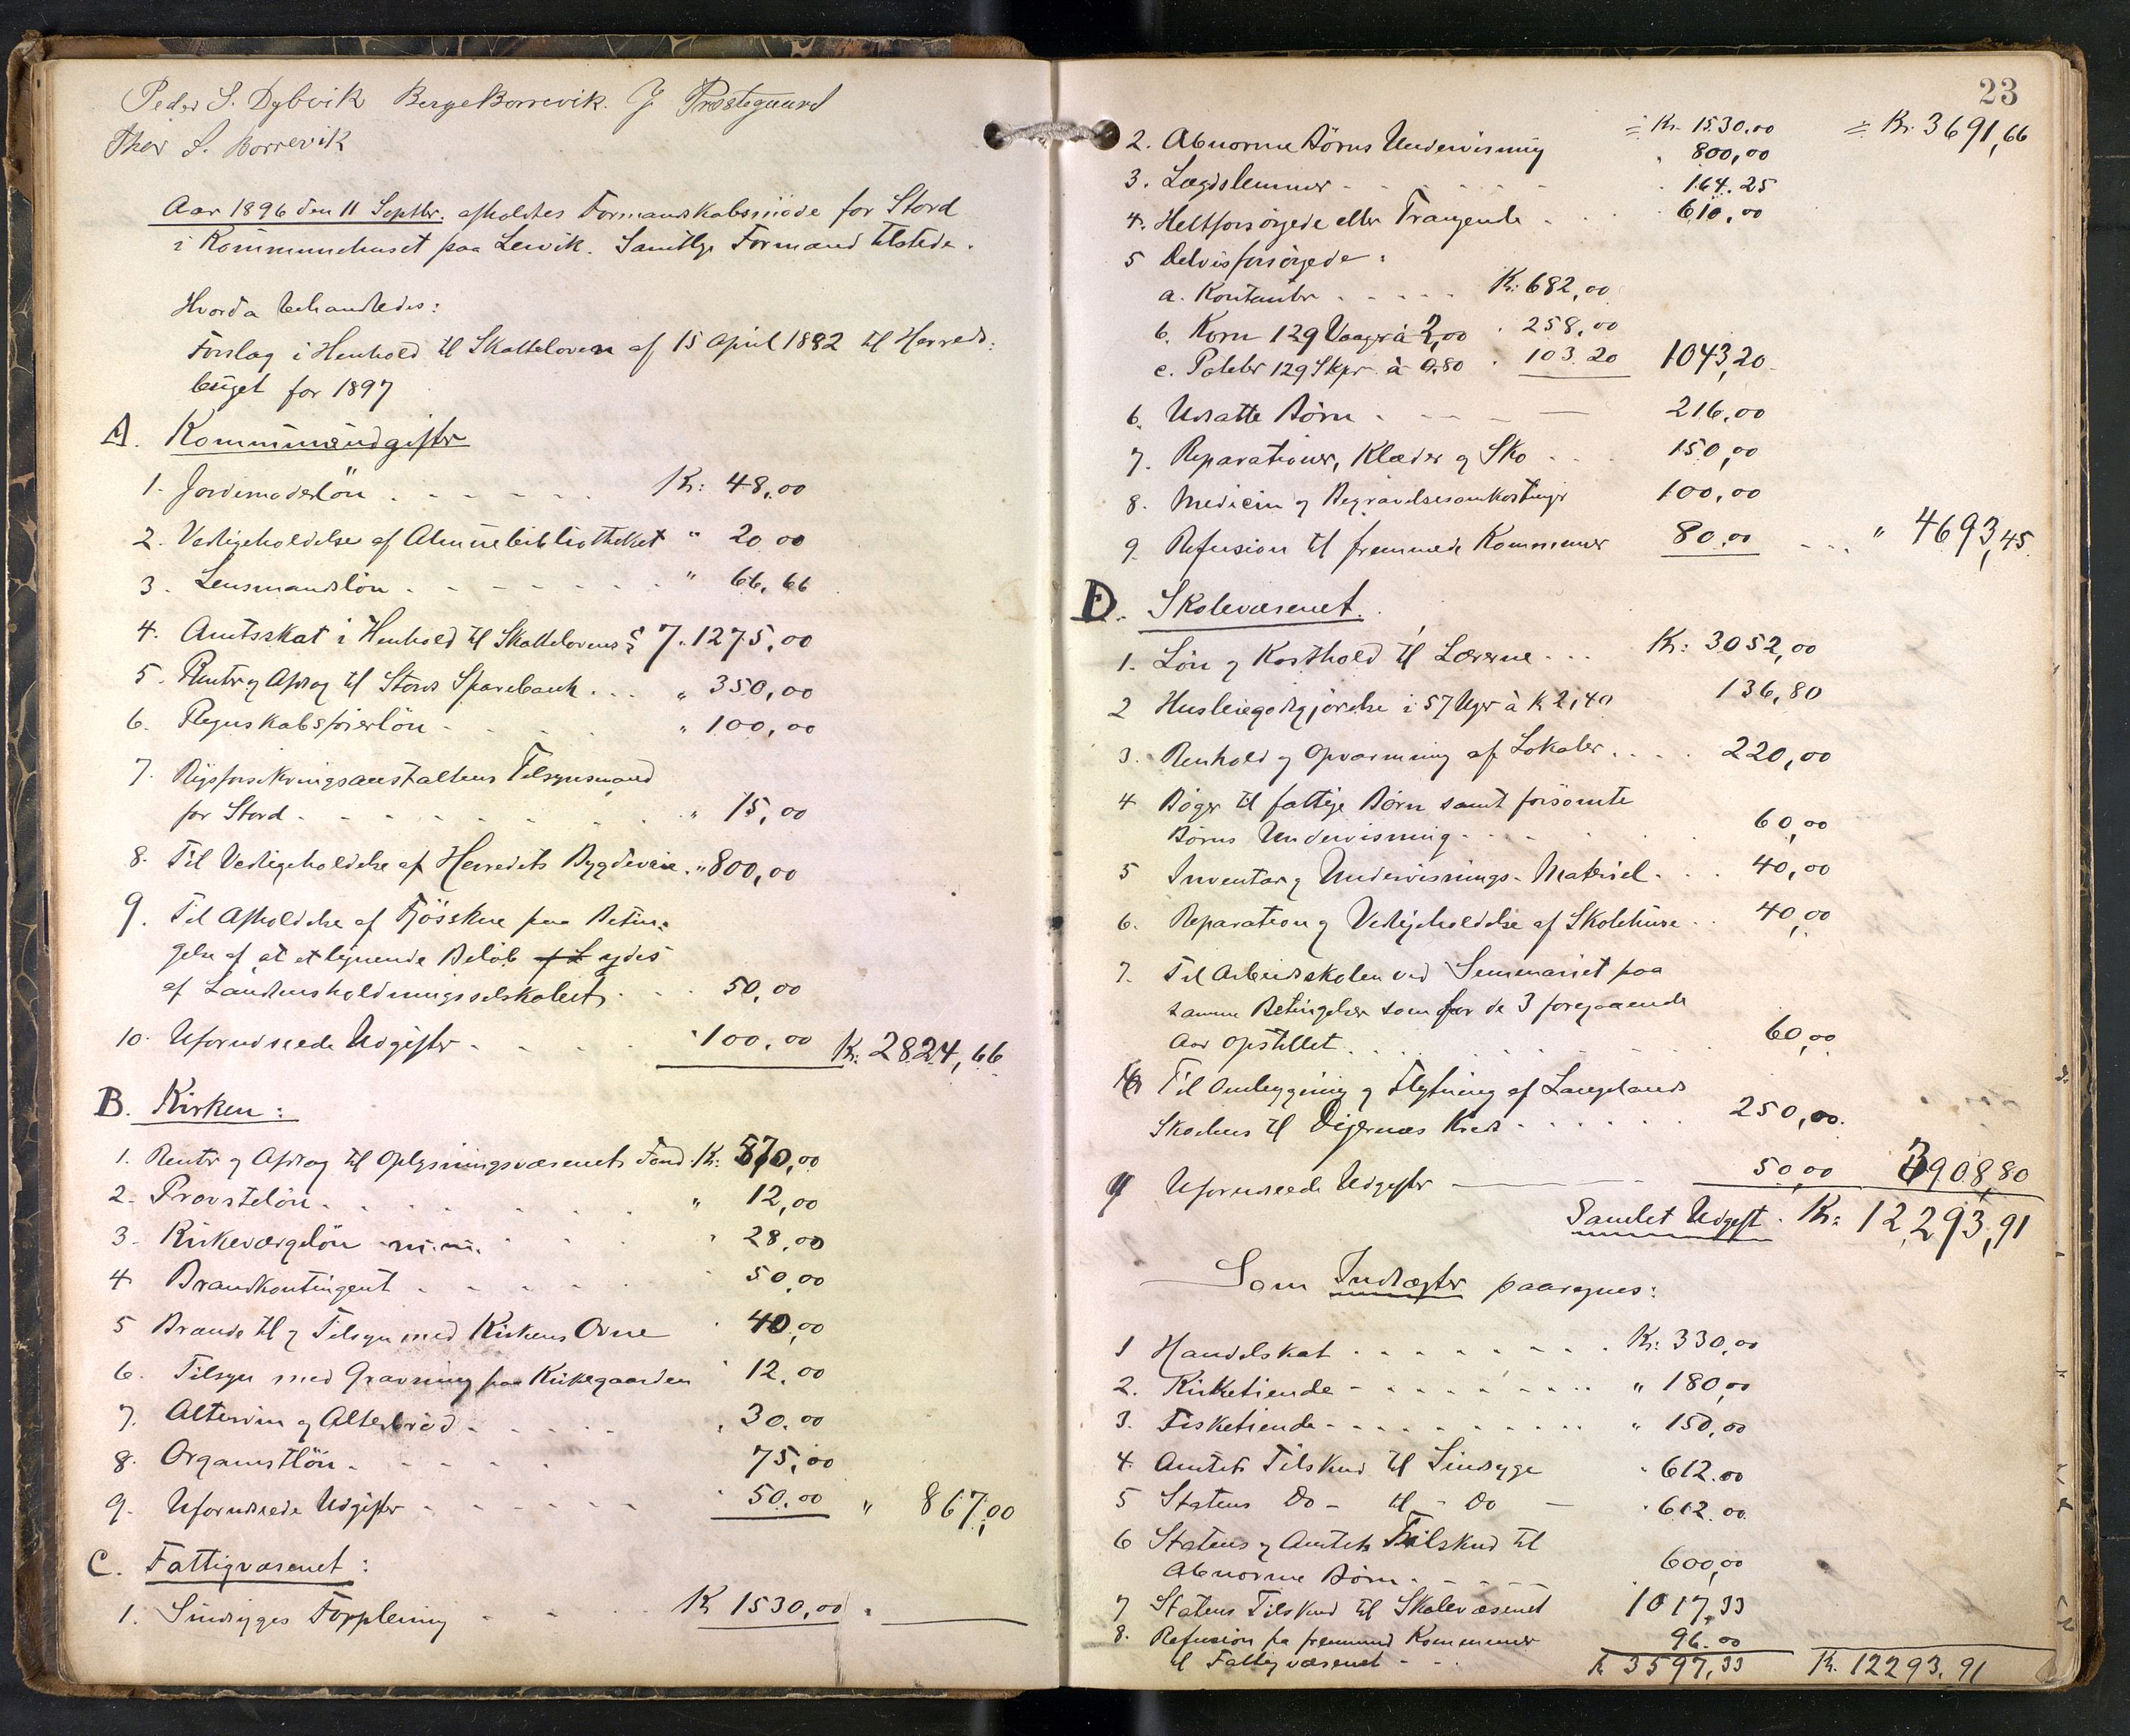 Peder S. Dybvik Berge Borrevik. J Prestegaard
Thor S. Borrevik
Aar 1896 den 11 Septbr. afholdtes Formandskabsmøde for Stord
i Kommunehuset paa Lervik. Samtlige Formænd tilstede.
Hvorda behandledes:
Forslag i Henhold til Skatteloven af 15 April 1882 til Herreds:
buget for 1897
A. Kommuneudgifter
1. Jordemoderløn . . . . . . Kr: 48,00
2. Vedligeholdelse af Almuebibliotheket " 20 00
3. Lensmandsløn . - - - - - " 66,66
4. Amtsskat i Henhold til Skattelovens § 7. 1275,00
5. Renter og Afdrag til Stords Sparebank . . . " 350,00
6. Regnskabsførerløn - . . . " 100,00
7. Rigsforsikringsanstaltens Tilsynsmand
for Stord . - - - - - - . " 15,00
8. Til Vedligeholdelse af Herredets Bygdeveie . " 800,00
9. Til Afholdelse af Fjösskue paa Betin=
gelse af at et lignende Beløb af L ydes
af Landhusholdningsselskabet . . . 50,00
10. Uforudseede Udgifter - . . . " 100,00 Kr: 2824,66
B. Kirken:
1. Renter og Afdrag til Oplysningsvæsenets Fond Kr: 570,00
2. Provsteløn . . . . . . " 12,00
3. Kirkeværgeløn m.m. . . . " 28,00
4 Brandkontingent . . - - - 50,00
5 Brænde til og Tilsyn med Kirkens Ovne " 40,00
6. Tilsyn med Gravning paa Kirkegaarden " 12,00
7. Altervin og Alterbrød - . . . . " 30,00
8. Organistløn . - - - - 75,00
9. Uforudseede Udgifter - - - - - " 50,00 " 867,00
C. Fattigvæsenet:
1. Sindsyges Forpleining - - . . . Kr 1530,00
23
= Kr. 1530,00 = Kr. 3691,66
2. Abnorme Børns Undervisning " 800,00
3. Lægdslemmer - - - - - . 164.25
4. Heltforsørgede eller Trængende . . . . 610,00
5 Delvisforsørgede:
a. Kontanter . . - - - Kr: 682,00
b. Korn 129 Vaager à 2,00 . 258,00
c. Poteter 129 Skpr. à 0.80 . 103.20 1043,20
6. Udsatte Børn - - - - - 216,00
7. Reparationer, Klæder og Sko . . . 150,00
8. Medicin og Begravelsesomkostninger 100,00
9. Refusion til fremmede Kommuner 80.00 - - . " 4693,45
D. Skolevæsenet.
1. Løn og Kosthold til Lærerne . . . Kr: 3052,00
2 Husleiegodtgjørelse i 57 Uger à k 2,40 136,80
3. Renhold og Opvarming af Lokaler . . . . 220,00
4 Bøger til fattige Børn samt forsømte
Børns Undervisning - . . . . 60,00
5 Inventar og Undervisnings-Materiel . . . 40,00
6. Reparation og Vedligeholdelse af Skolehuse . . 40,00
7. Til Arbeidsskolen ved Seminariet paa
samme Betingelser som for de 3 foregaaende
Aar opstillet . . . . . . 60,00
Til Ombygning og Flytning af Langelands
Skolehus til Digernæs Kreds . . . . . . 250,00
9 Uforudseede Udgifter - - 50,00 3908,80
Samlet Udgift . Kr: 12,293,91
Som Indtægter paaregnes:
1 Handelskat . . - - - - . Kr: 330,00
2. Kirketiende - - - - - - . . " 180,00
3. Fisketiende - - - - - . . " 150,00
4. Amtets Tilskud til Sindsyge . 612.00
5 Statens Do - til - Do - . 612.00
6 Statens og Amtets Tilskud til
Abnorme Børn . - - - - 600,00
7 Statens Tilskud til Skolevæsenet 1017,33
8. Refusion fra fremmed Kommuner 96.00
til Fattigvæsenet - - . K 3597,33 Kr. 12293,91